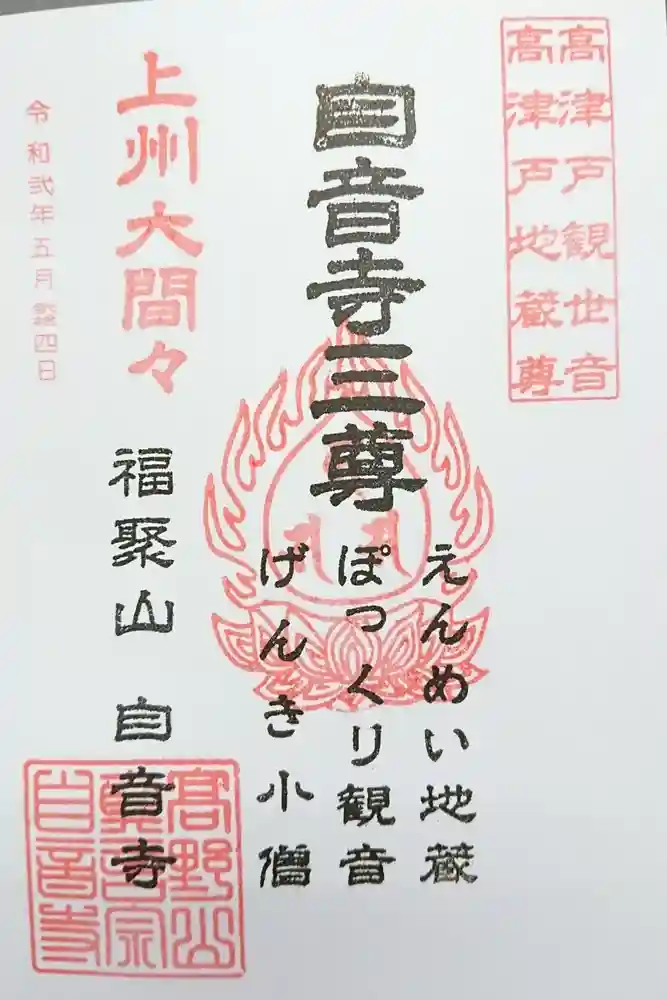 高津戸観世音
高津戸地蔵尊
自音寺三尊
えんめい地蔵
ぽっくり観音
げんき小僧
上州大間々
福聚山 自音寺
令和弐年五月廿四日
高野山
真言宗
自音寺